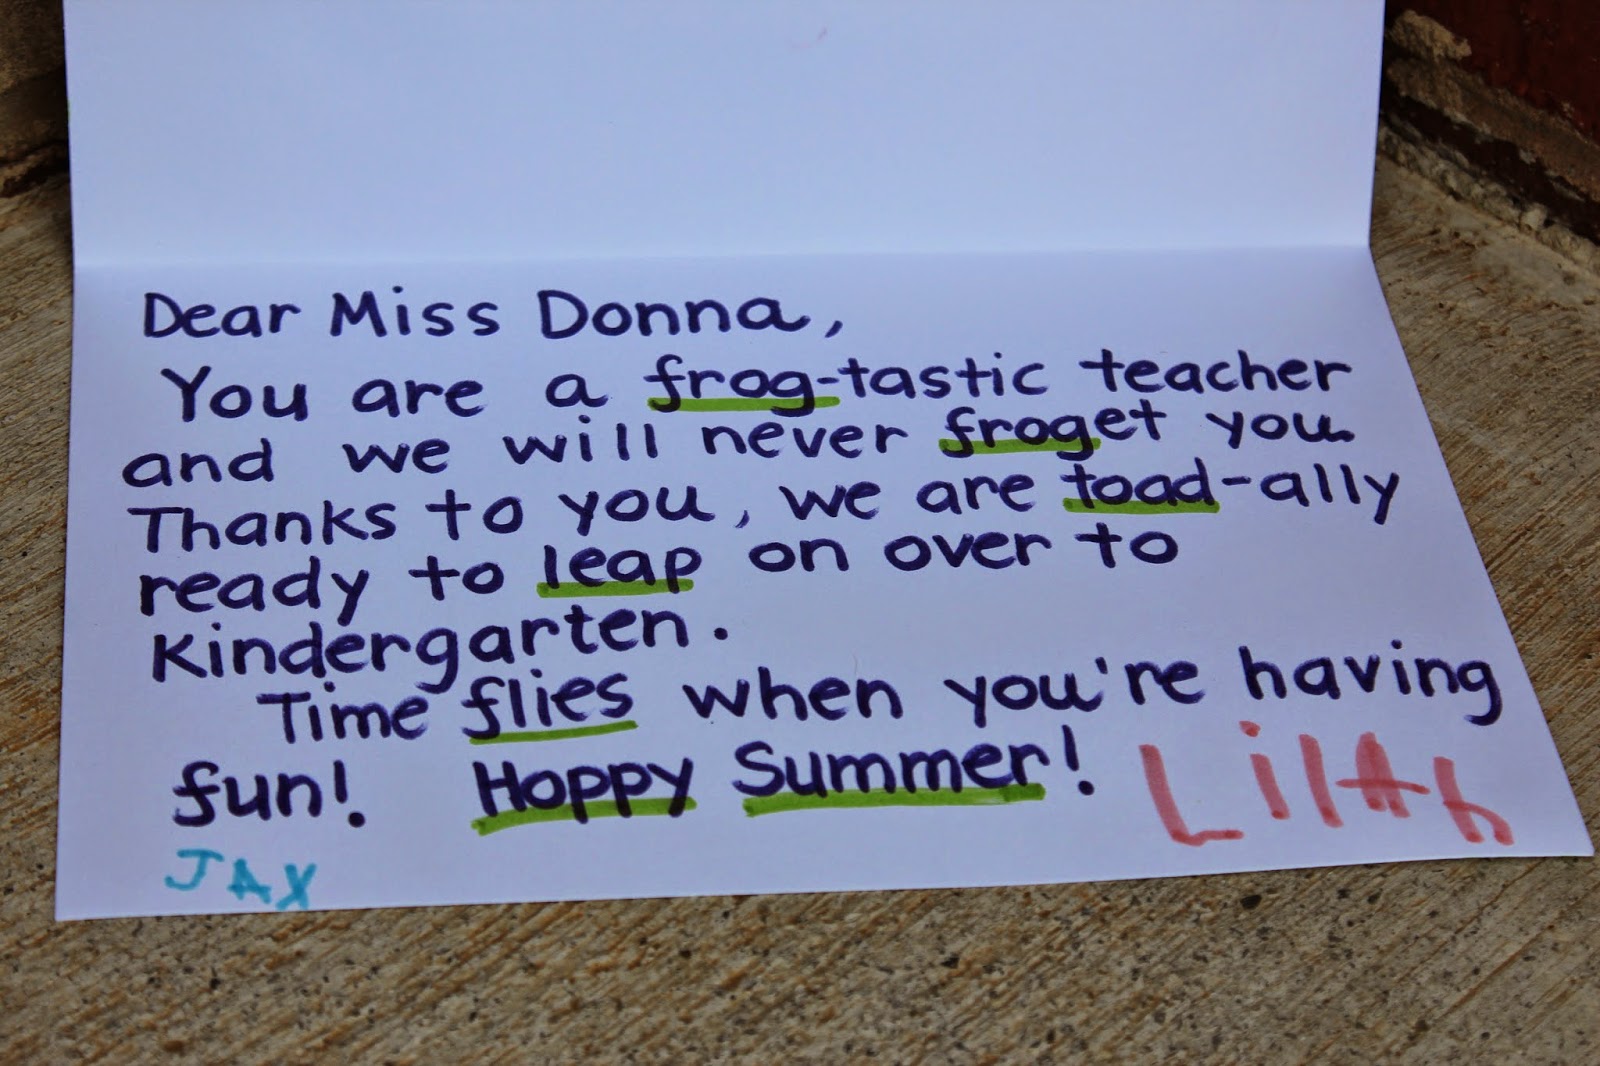 Dear Miss Donna,
You are a frog-tastic teacher
and we will never froget you.
Thanks to you, we are toad-ally
ready to leap on over to
Kindergarten.
Time flies when you're having
fun! Hoppy Summer!
Lilah
JAX